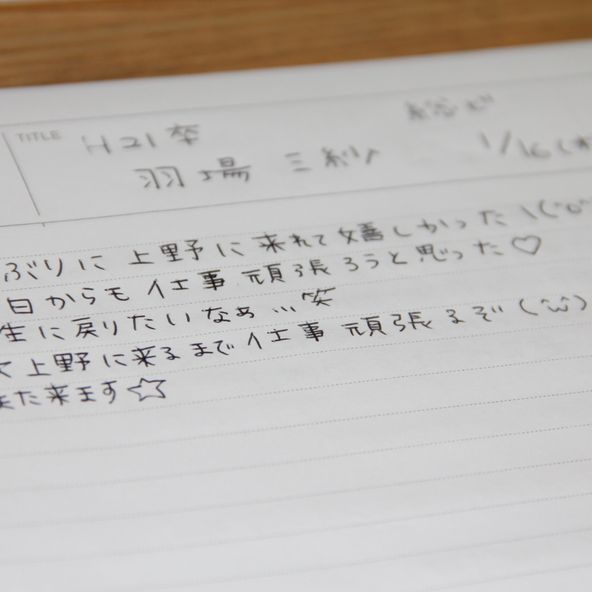 TITLE
H21卒
羽場 三紗
1/16(木
ぶりに上野に来れて嬉しかった\(^o^
日からも仕事頑張ろうと思った♡
生に戻りたいなぁ…笑
て上野に来るまで仕事頑張るぞ(^ω^)
また来ます☆